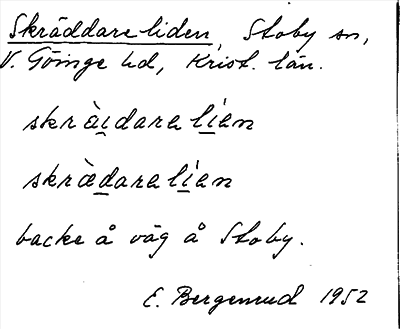 Skräddareliden, Stoby sn,
V. Göinge hd, Krist. län.
skràidaralíen
skràedaralíen
backe å väg å Stoby.
E. Bergenrud 1952